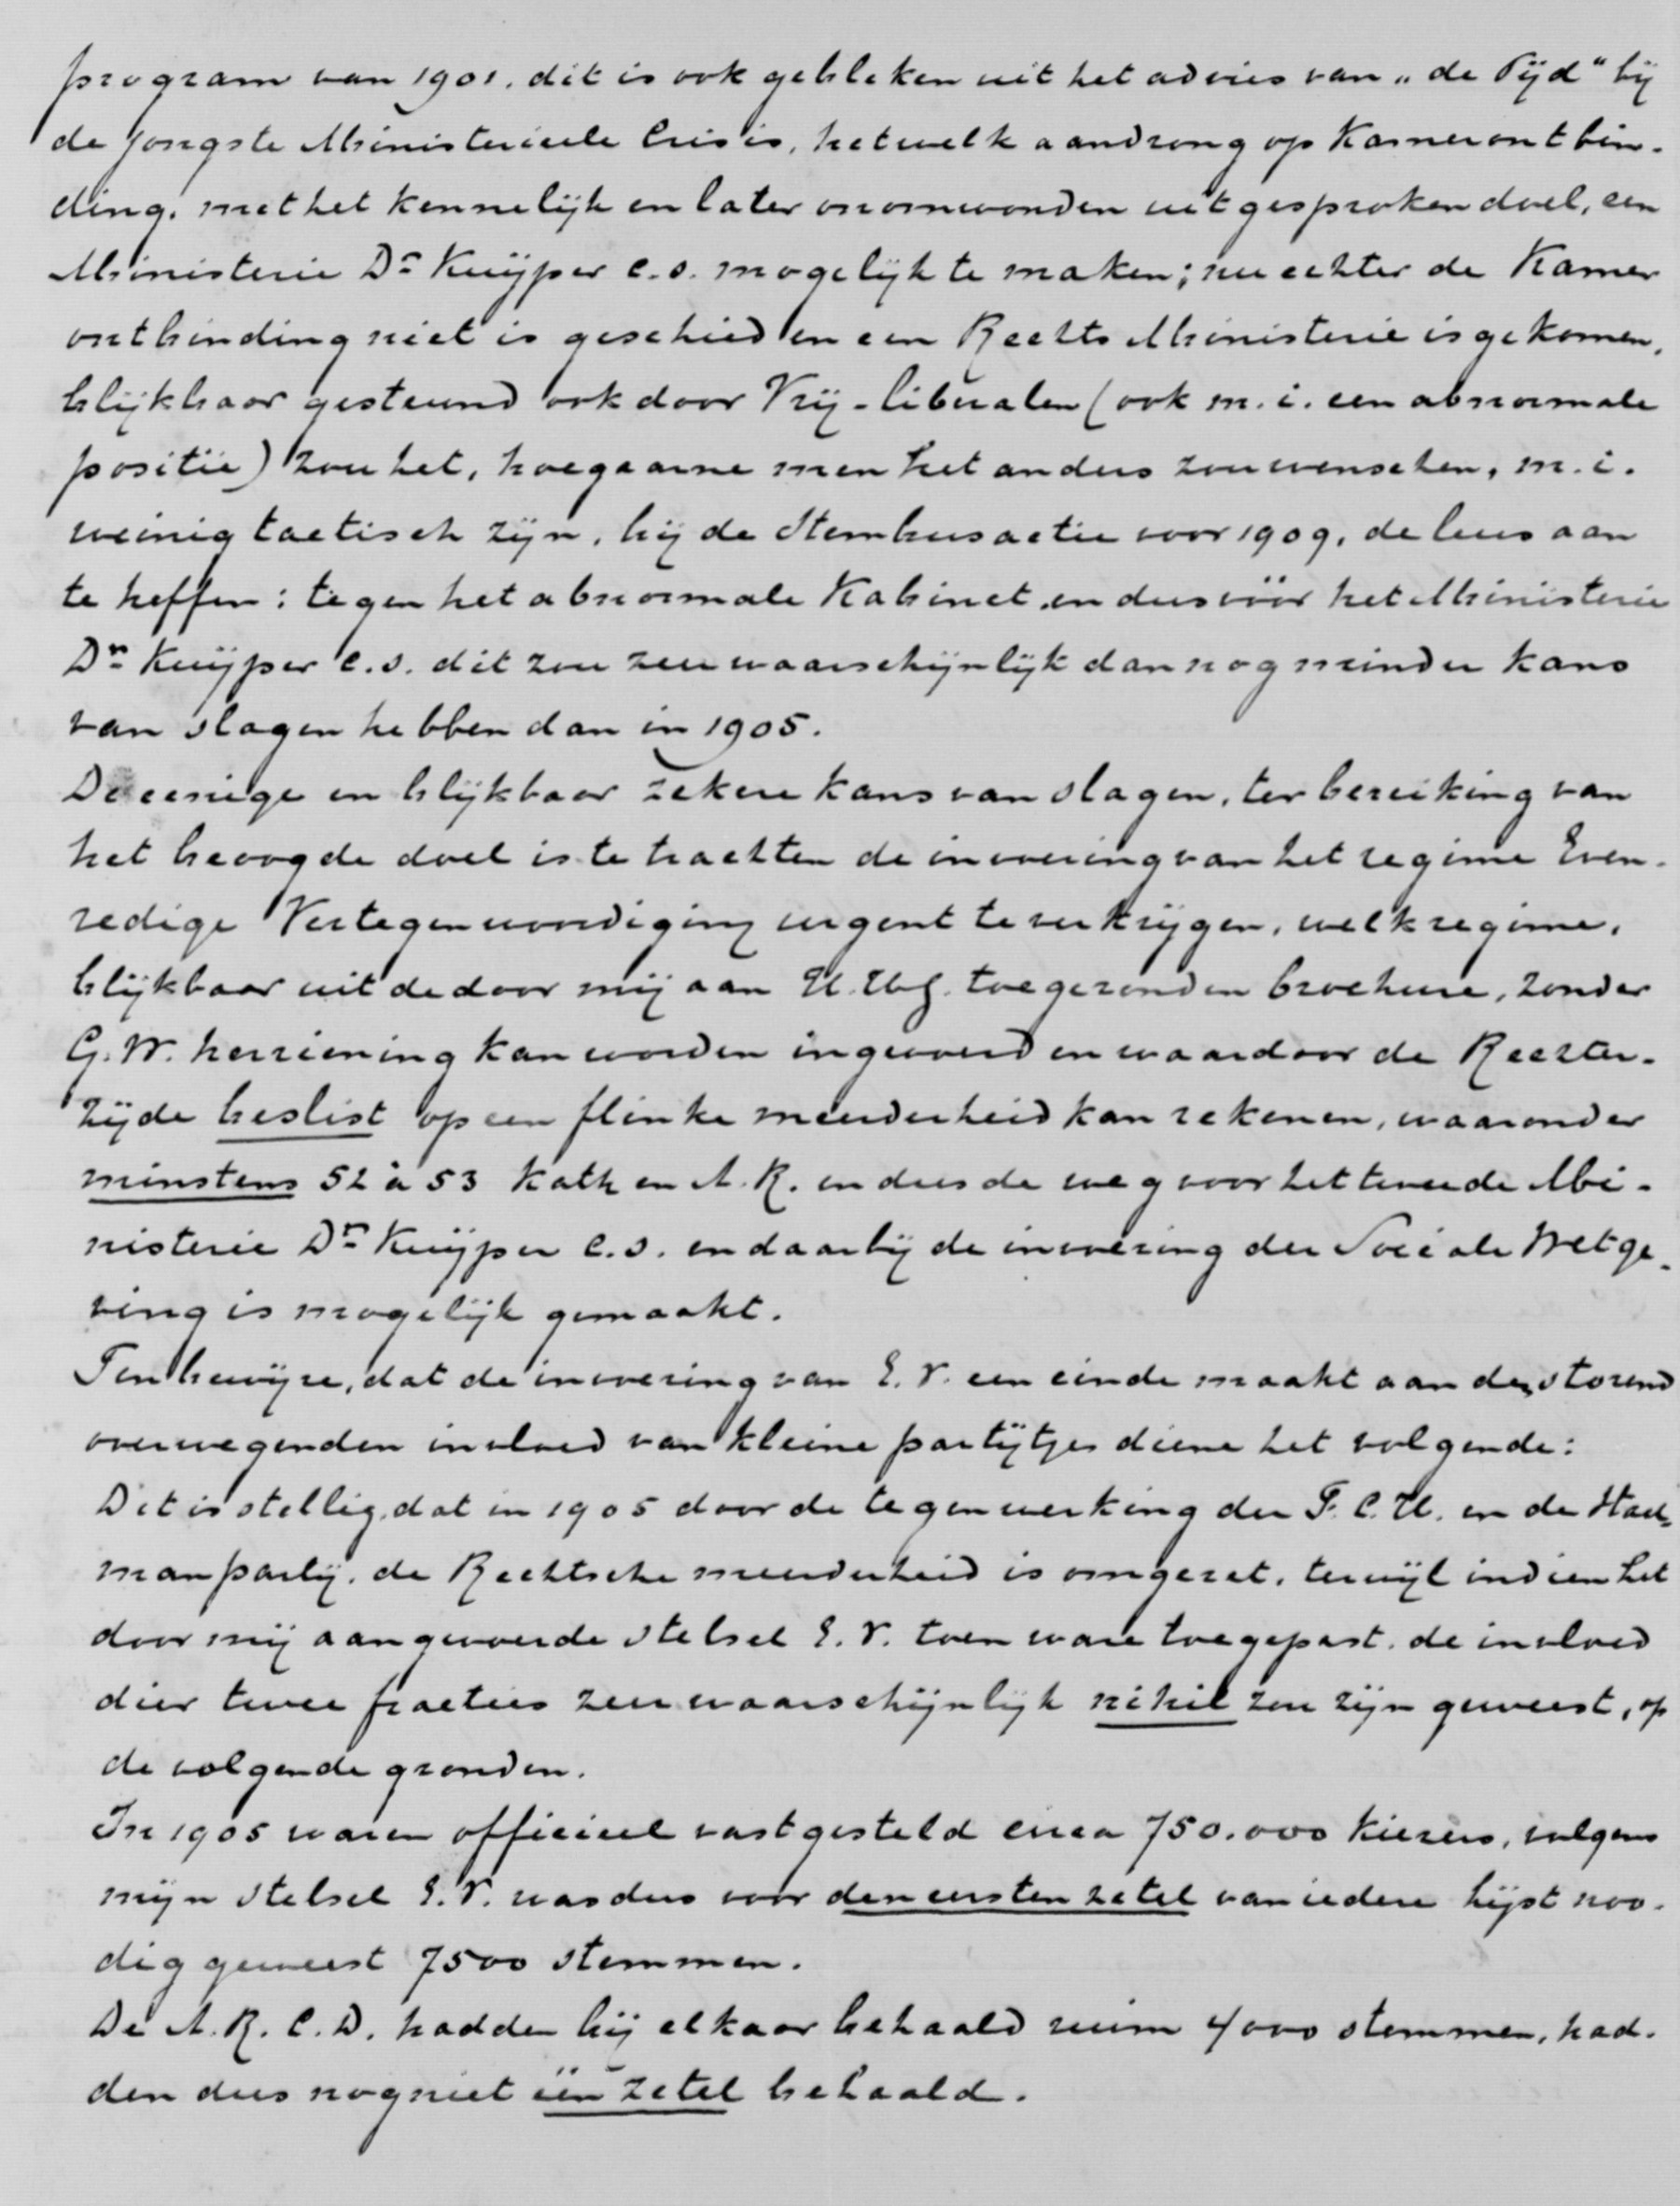 program van 1901. dit is ook gebleken uit het advies van „de Tijd" bij
de jongste Ministerieele Crisis, hetwelk aandrong op Kamerontbin-
ding, met het kennelijk en later onomwonden uitgesproken doel, een
Ministerie Dr Kuijper c.s. mogelijk te maken; nu echter de Kamer
ontbinding niet is geschied en een Rechts Ministerie is gekomen,
blijkbaar gesteund ook door Vrij-liberalen (ook m.i. een abnormale
positie) zou het, hoe gaarne men het anders zou wenschen, m.i.
weinig tactisch zijn, bij de Stembusactie voor 1909, de leus aan
te heffen: tegen het abnormale Kabinet en dus vóór het Ministerie
Dr Kuijper c.s. dit zou zeer waarschijnlijk dan nog minder kans
van slagen hebben dan in 1905.
De eenige en blijkbaar zekere kans van slagen, ter bereiking van
het beoogde doel is te trachten de invoering van het regime Even-
redige Vertegenwoordiging urgent te verkrijgen, welk regime,
blijkbaar uit de door mij aan U.Ebg. toegezonden brochure, zonder
G.W. herziening kan worden ingevoerd en waardoor de Rechter-
zijde beslist op een flinke meerderheid kan rekenen, waaronder
minstens 52 à 53 Kath en A.R. en dus de weg voor het tweede Mi-
nisterie Dr Kuijper c.s. en daarbij de invoering der Sociale Wetge-
ving is mogelijk gemaakt.
Ten bewijze, dat de invoering van E.V. een einde maakt aan den storend
overwegenden invloed van kleine partijtjes diene het volgende:
Dit is stellig, dat in 1905 door de tegenwerking der F.C.H. en de Staal-
manpartij, de Rechtsche meerderheid is omgezet, terwijl indien het
door mij aangevoerde stelsel E.V. toen ware toegepast, de invloed
dier twee fracties zeer waarschijnlijk nihil zou zijn geweest, op
de volgende gronden.
In 1905 waren officieel vastgesteld circa 750.000 Kiezers, volgens
mijn stelsel E.V. was dus voor den eersten zetel van iedere lijst noo-
dig geweest 7500 stemmen.
De A.R.C.D. hadden bij elkaar behaald ruim 4000 stemmen, had-
den dus nog niet één zetel behaald.